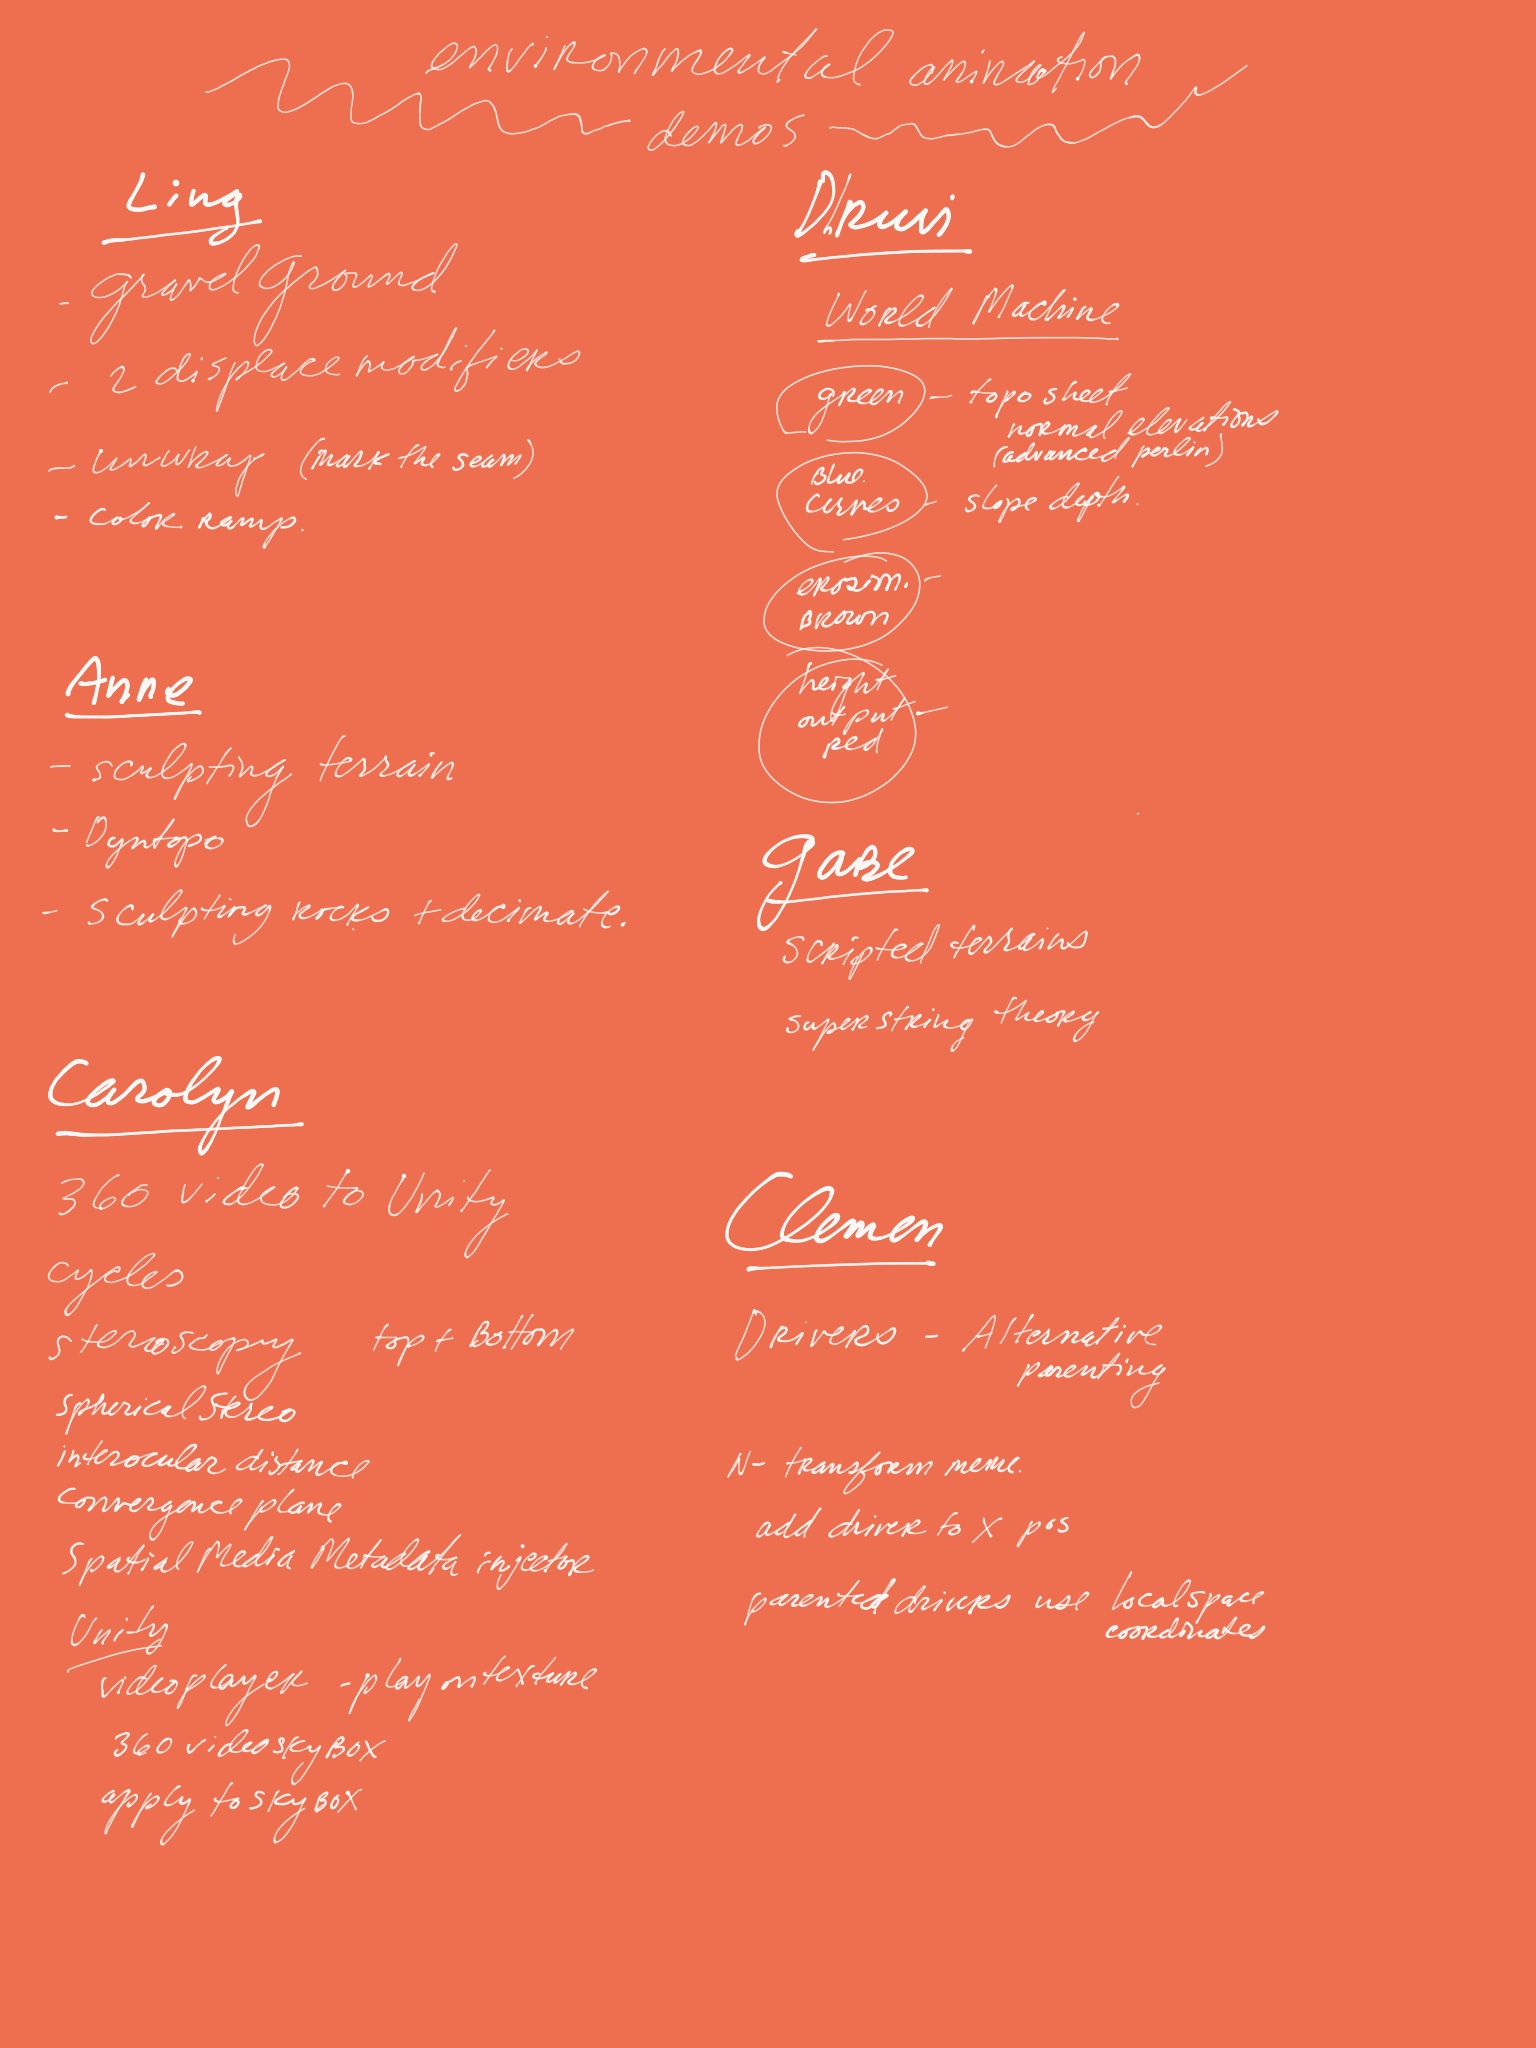 environmental animation
demos
Ling
- gravel ground
- 2 displace modifiers
- unwrap (mark the seam)
- color ramp.
Anne
- sculpting terrain
- Dyntopo
- Sculpting rocks + decimate.
Carolyn
360 video to Unity
cycles
stereoscopy top + Bottom
Spherical Stereo
interocular distance
convergence plane
Spatial Media Metadata injector
Unity
videoplayer - play on texture
360 video skyBox
apply to skyBox
World Machine
green - topo sheet
normal elevations
(advanced perlin)
Blue
curves - slope depth.
erosion. -
Brown
height
output -
red
Gabe
scripted terrains
superstring theory
Clemen
Drivers - Alternative
parenting
N - transform menu.
add driver to X pos
parented drivers use local space
coordinates